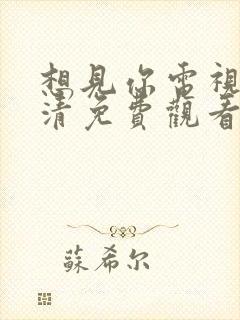 想見你電視
清免費觀看
蘇希尔